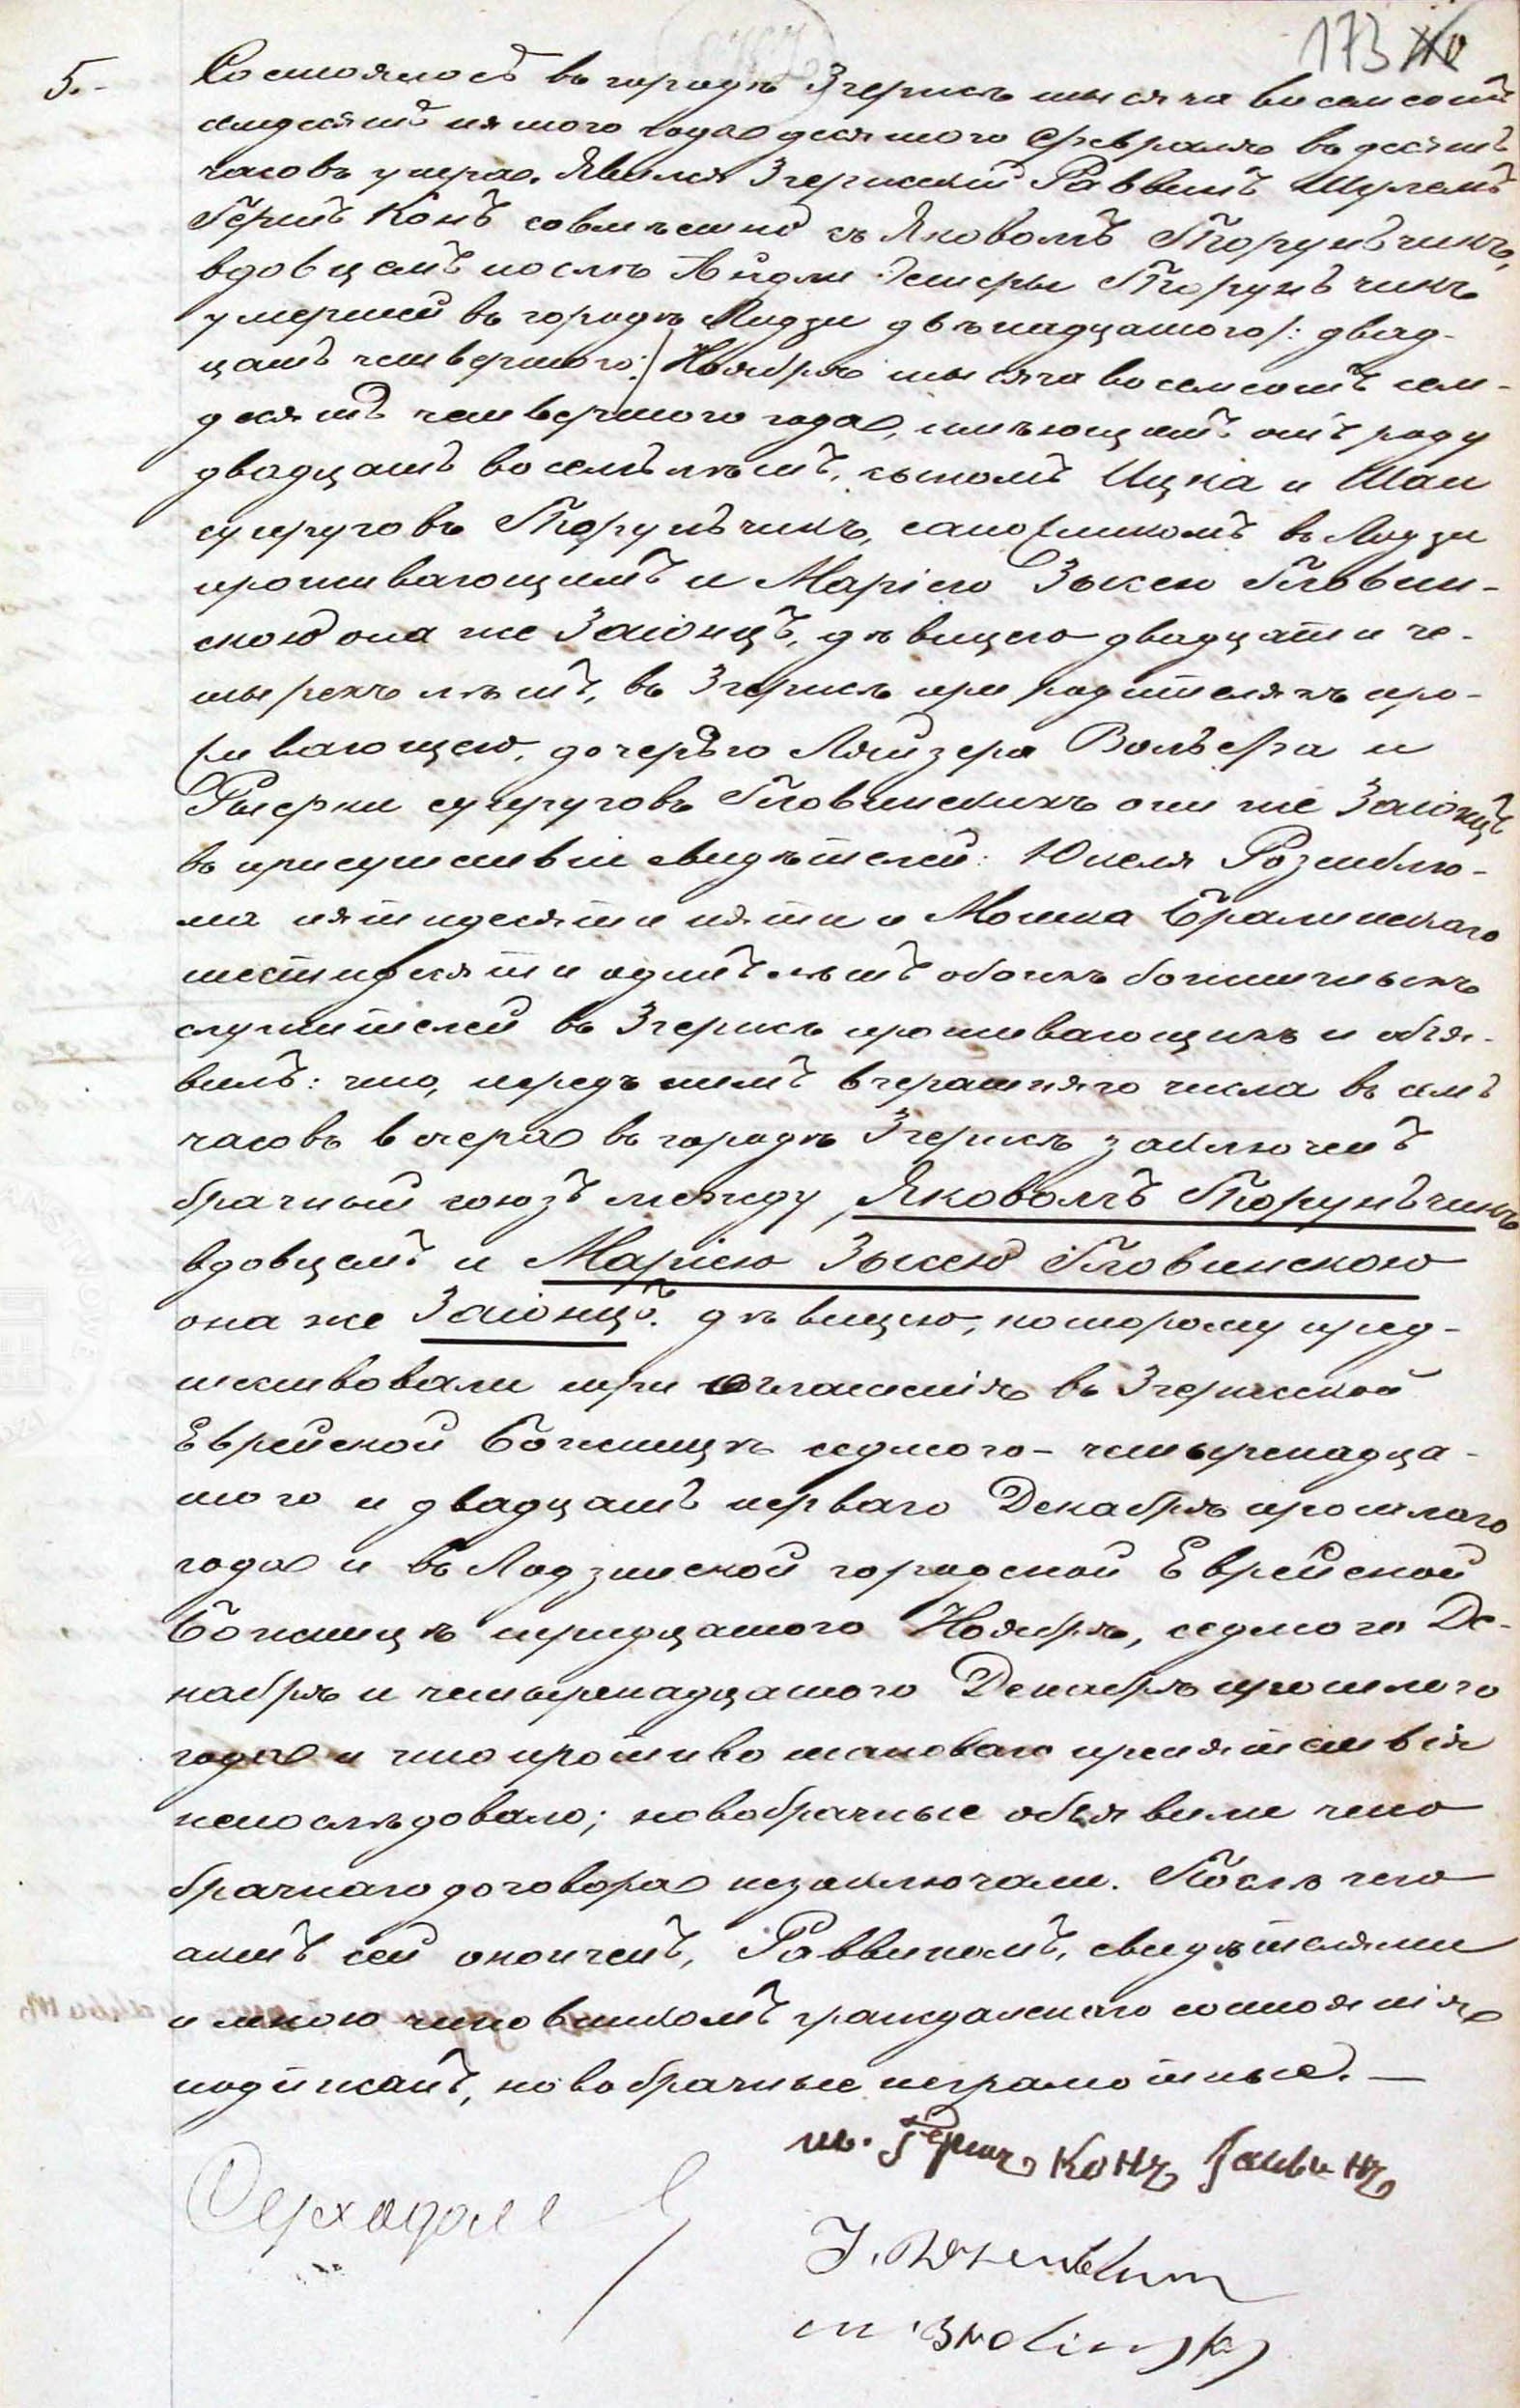 173
5.- Состоялось въ городѣ Згержѣ тысяча восемьсотъ
семдесятъ пятого года десятого Февраля въ десять
часовъ утра. Явился Згержскій Раввинъ Шулемъ
Гершъ Конъ совмѣстно съ Яковомъ Торуньчикъ,
вдовцемъ послѣ Айдли Эстеры Торуньчикъ
умершей въ городѣ Лодзи двѣнадцатого /: двад-
цать четвертого :/ Ноября тысяча восемсотъ сем-
десятъ четвертого года, имѣющимъ отъ роду
двадцать восемь лѣтъ, сыномъ Ицка и Шаи
супруговъ Торуньчикъ, сапожникомъ въ Лодзи
проживающимъ и Маріею Зысею Пловин-
скою она же Заіонцъ, дѣвицею двадцати че-
тырехъ лѣтъ, въ Згержѣ при родителяхъ про-
живающею, дочерью Ляйзера Вольфа и
супруговъ Пловинскихъ они же Заіонцъ
въ присутствіи свидѣтелей: Юкеля Розенблю-
ма пятидесяти пяти и Мошка Бралинскаго
шестидесяти одинъ лѣтъ обоихъ божничныхъ
служителей въ Згержѣ проживающихъ и объя-
вилъ: что, передъ нимъ вчерашняго числа въ семь
часовъ вечера въ городѣ Згержѣ заключенъ
брачный союзъ между Яковомъ Торуньчикъ
вдовцемъ и Маріею Зысею Пловинскою
она же Заіонцъ. дѣвицею, которому пред-
шествовали три оглашенія въ Згержской
Еврейской Божницѣ седмого - четырнадца-
того и двадцать перваго Декабря прошлаго
года и въ Лодзинской городской Еврейской
Божницѣ тридцатого Ноября, седмого Де-
кабря и четырнадцатого Декабря прошлого
года и что противо таковаго препятствія
непослѣдовало; новобрачные объявили что
брачнаго договора незаключали. Послѣ чего
актъ сей оконченъ, Раввиномъ, свидѣтелями
и мною чиновникомъ гражданскаго состоянія
подписанъ, новобрачные неграмотные. —
ш. Гершъ Конъ